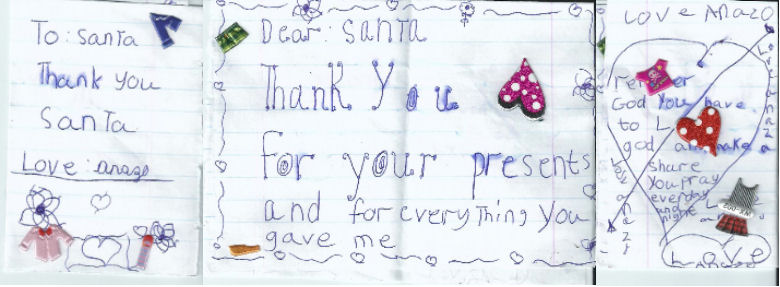 To: Santa
Thank you
Santa
Love: anazo
Dear: Santa
Thank You
for your presents
and for everything you
gave me
Love Anazo
God You have
to L
god and make a
share
you pray
everyday
and
night
Love